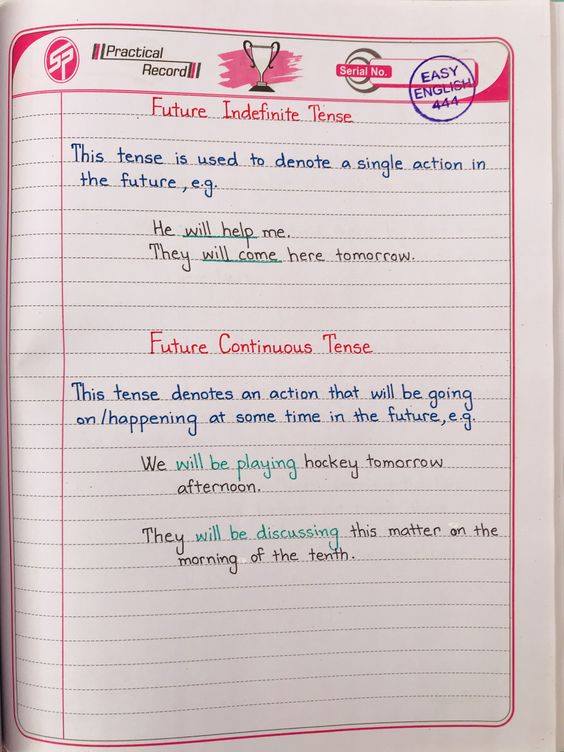 SP
Practical
Record
Serial No.
EASY
ENGLISH
444
Future Indefinite Tense
This tense is used to denote a single action in
the future, e.g.
He will help me.
They will come here tomorrow.
Future Continuous Tense
This tense denotes an action that will be going
on/happening at some time in the future, e.g.
We will be playing hockey tomorrow
afternoon.
They will be discussing this matter on the
morning of the tenth.